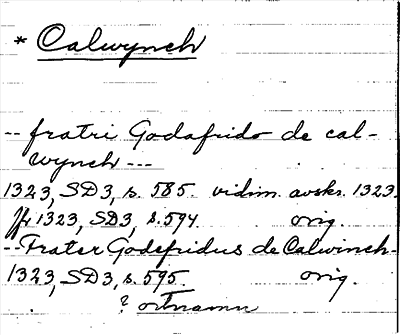 * Calwynch
-- fratri Godafrido de cal-
wynch ---
1323, SD3, s. 585. vidim. avskr. 1323.
Jfr 1323, SD3, s. 594. orig.
-- Frater Godefridus de Calwinch-
1323, SD3, s. 595. orig.
? ortnamn